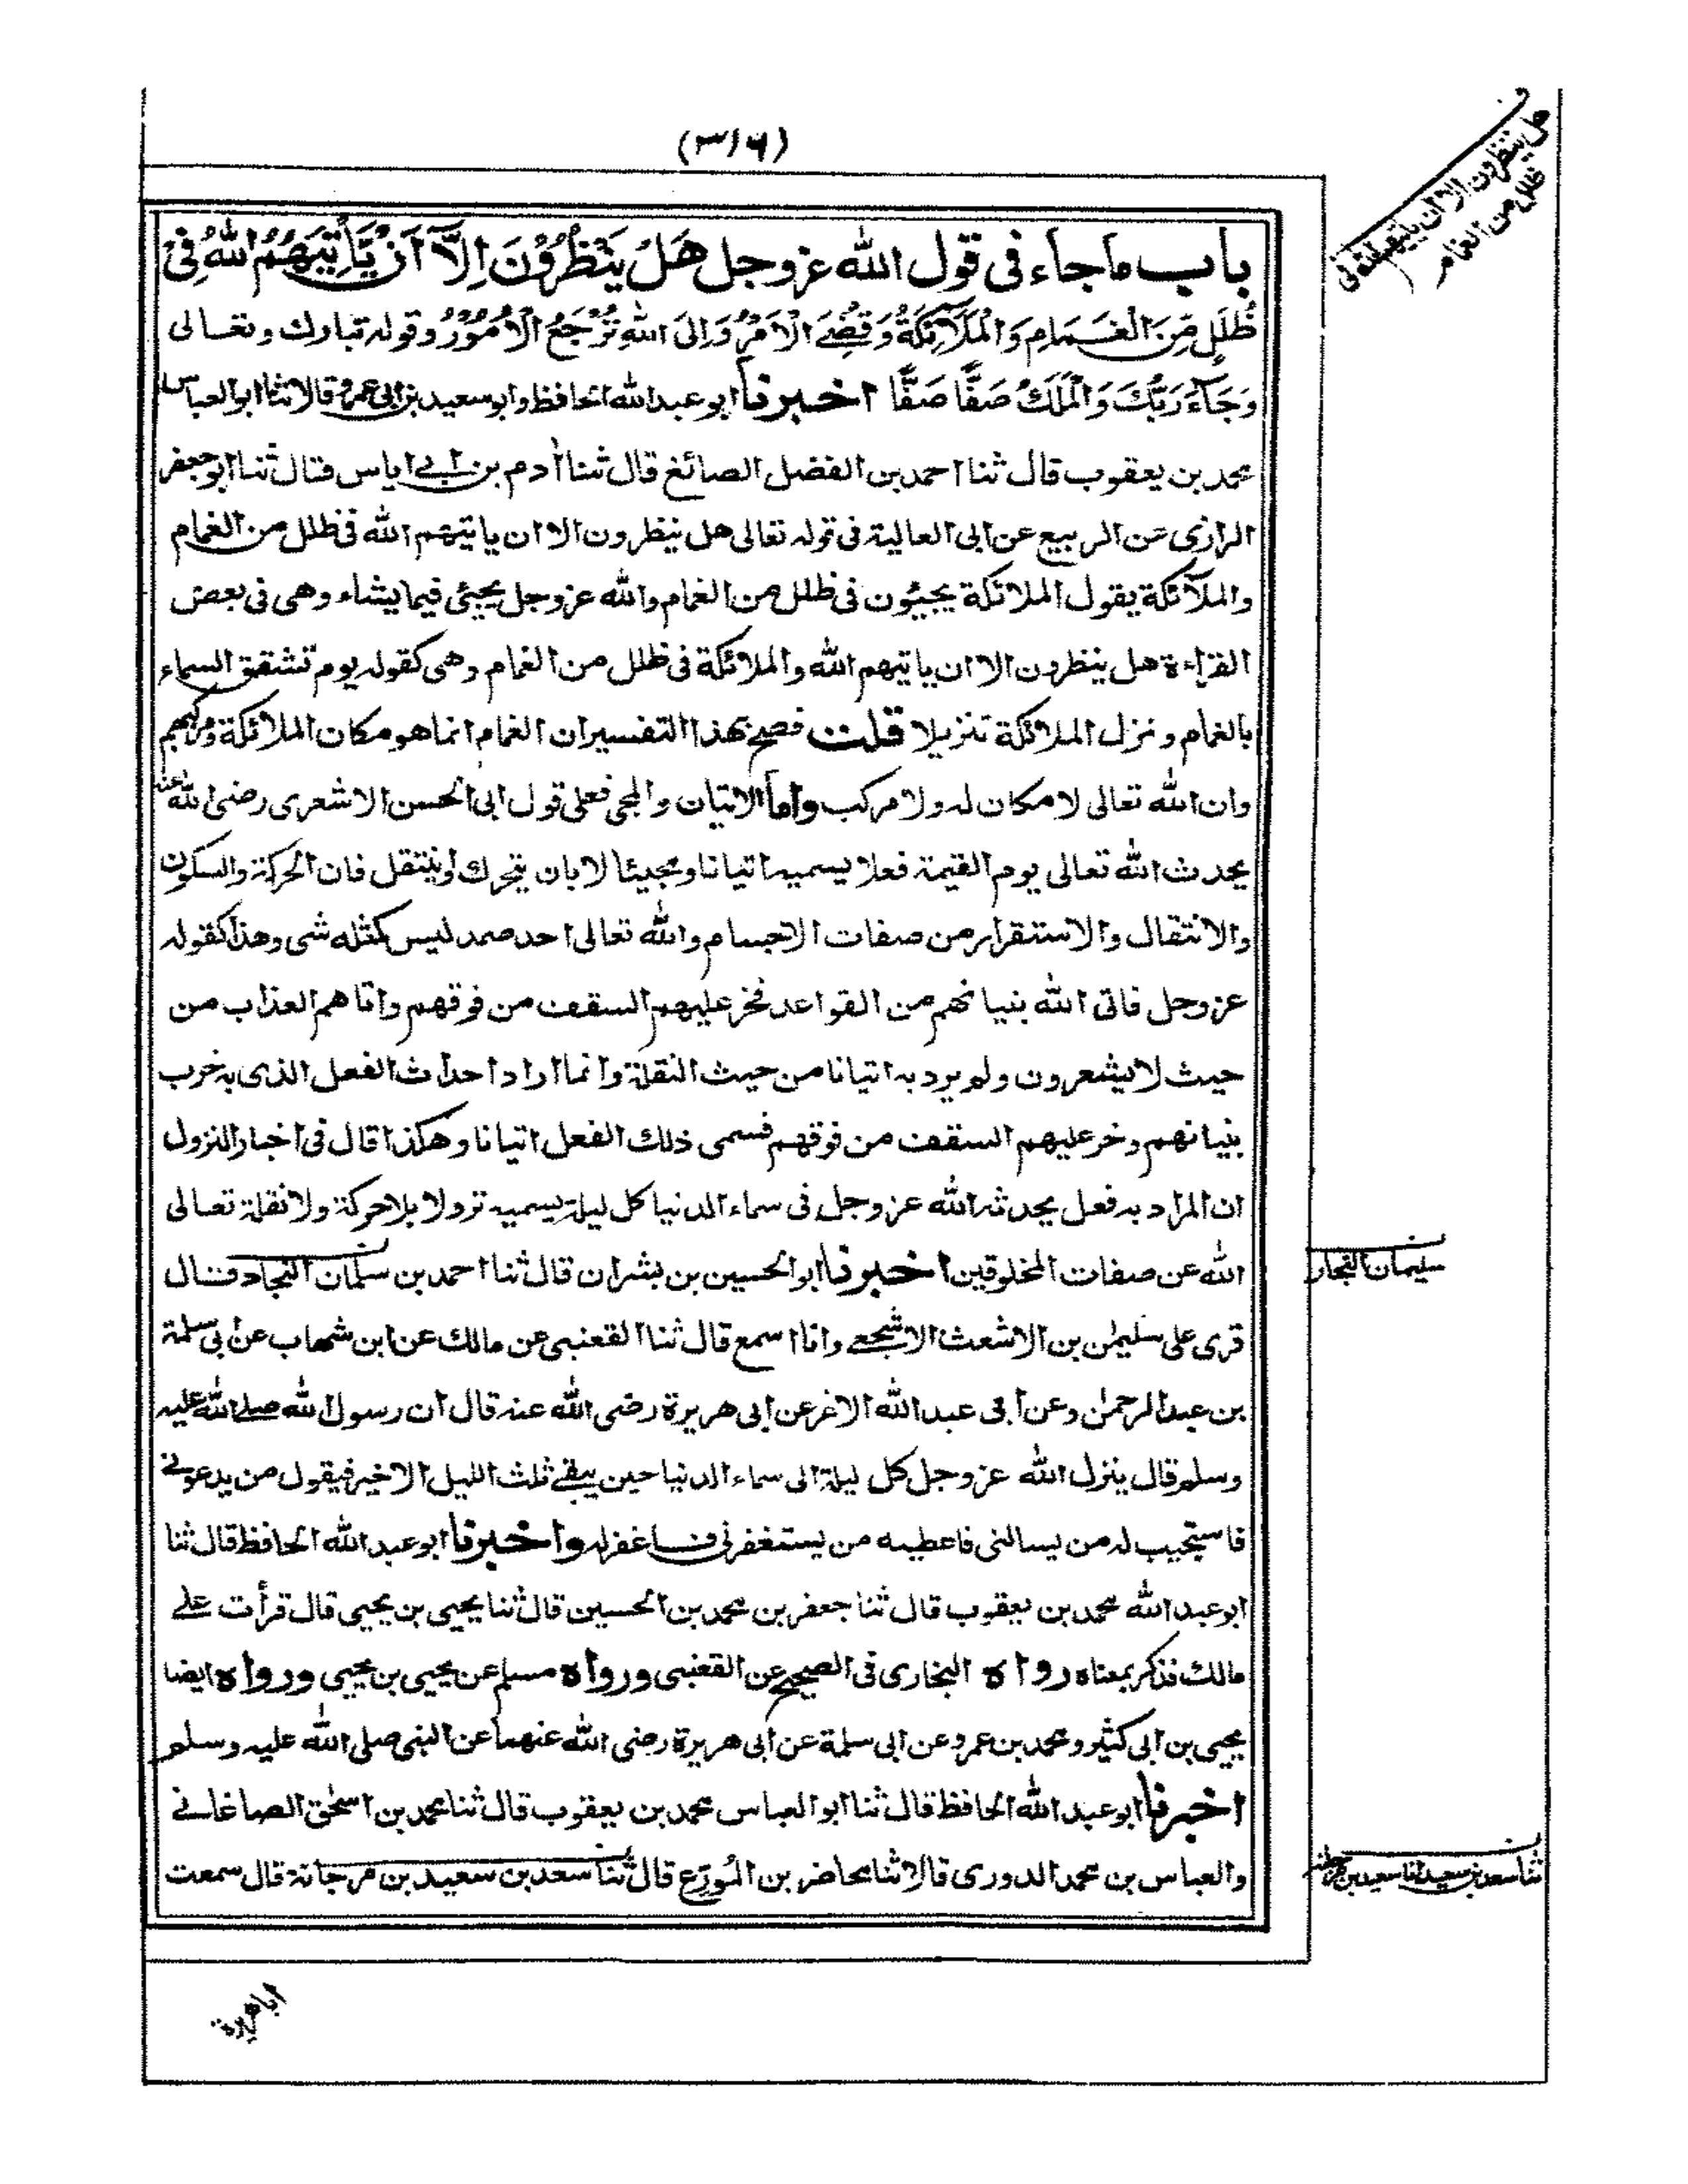 (٣١٦)
هل ينظرون الا ان ياتيهم الله فى
ظلل من الغمام
باب ماجاء فى قول الله عزوجل هَلْ يَنْظُرُوْنَ اِلَّآ اَنْ يَّاْتِيَهُمُ اللّٰهُ فِىْ
ظُلَلٍ مِّنَ الْغَمَامِ وَالْمَلَآئِكَةُ وَقُضِىَ الْاَمْرُ وَاِلَى اللّٰهِ تُرْجَعُ الْاُمُوْرُ وقوله تبارك وتعالى
وَجَآءَ رَبُّكَ وَالْمَلَكُ صَفًّا صَفًّا اخبرنا ابو عبدالله الحافظ وابو سعيد بن ابى عمرو قالا ثنا ابو العباس
محمد بن يعقوب قال ثنا احمد بن الفضل الصائغ قال ثنا أدم بن ابى اياس قال ثنا ابو جعفر
الرازى عن الربيع عن ابى العالية فى قوله تعالى هل ينظرون الا ان ياتيهم الله فى ظلل من الغمام
والملآئكة يقول الملائكة يجيئون فى ظلل من الغمام والله عزوجل يجيئ فيما يشاء وهى فى بعض
القراءة هل ينظرون الا ان ياتيهم الله والملائكة فى ظلل من الغمام وهى كقوله يوم تشقق السماء
بالغمام ونزل الملائكة تنزيلا قلت فصح بهذا التفسير ان الغمام انما هو مكان الملائكة ومركبهم
وان الله تعالى لا مكان له ولا مركب واما الاتيان والمجئ فعلى قول ابى الحسن الاشعرى رضى الله عنه
يحدث الله تعالى يوم القيمة فعلا يسميه اتيانا ومجيئا لا بان يتحرك او ينتقل فان الحركة والسكون
والانتقال والاستقرار من صفات الاجسام والله تعالى احد صمد ليس كمثله شى وهذا كقوله
عزوجل فاتى الله بنيانهم من القواعد فخر عليهم السقف من فوقهم واتاهم العذاب من
حيث لا يشعرون ولم يرد به اتيانا من حيث النقلة وانما اراد احداث الفعل الذى به خرب
بنيانهم وخر عليهم السقف من فوقهم فسمى ذلك الفعل اتيانا وهكذا قال فى اخبار النزول
ان المراد به فعل يحدثه الله عزوجل فى سماء الدنيا كل ليلة يسميه نزولا بلا حركة ولا نقلة تعالى
الله عن صفات المخلوقين اخبرنا ابو الحسين بن بشران قال ثنا احمد بن سلمان النجاد قال
سليمان النجار
قرى على سليمٰن بن الاشعث الاشجعى وانا اسمع قال ثنا القعنبى عن مالك عن ابن شهاب عن ابى سلمة
بن عبدالرحمٰن وعن ابى عبدالله الاغر عن ابى هريرة رضى الله عنه قال ان رسول الله صلى الله عليه
وسلم قال ينزل الله عزوجل كل ليلة الى سماء الدنيا حين يبقى ثلث الليل الاخير فيقول من يدعونى
فاستجيب له من يسالنى فاعطيه من يستغفرنى فاغفرله واخبرنا ابو عبدالله الحافظ قال ثنا
ابو عبدالله محمد بن يعقوب قال ثنا جعفر بن محمد بن الحسين قال ثنا يحيى بن يحيى قال قرأت على
مالك فذكر بمعناه رواه البخارى فى الصحيح عن القعنبى ورواه مسلم عن يحيى بن يحيى ورواه ايضا
يحيى بن ابى كثير ومحمد بن عمرو عن ابى سلمة عن ابى هريرة رضى الله عنهما عن النبى صلى الله عليه وسلم
اخبرنا ابو عبدالله الحافظ قال ثنا ابو العباس محمد بن يعقوب قال ثنا محمد بن اسحٰق الصاغانى
والعباس بن محمد الدورى قالا ثنا محاضر بن المُورّع قال ثنا سعد بن سعيد بن مرجانة قال سمعت
ثنا سعد بن سعيد انا سعيد بن مرجانة
اباهريرة